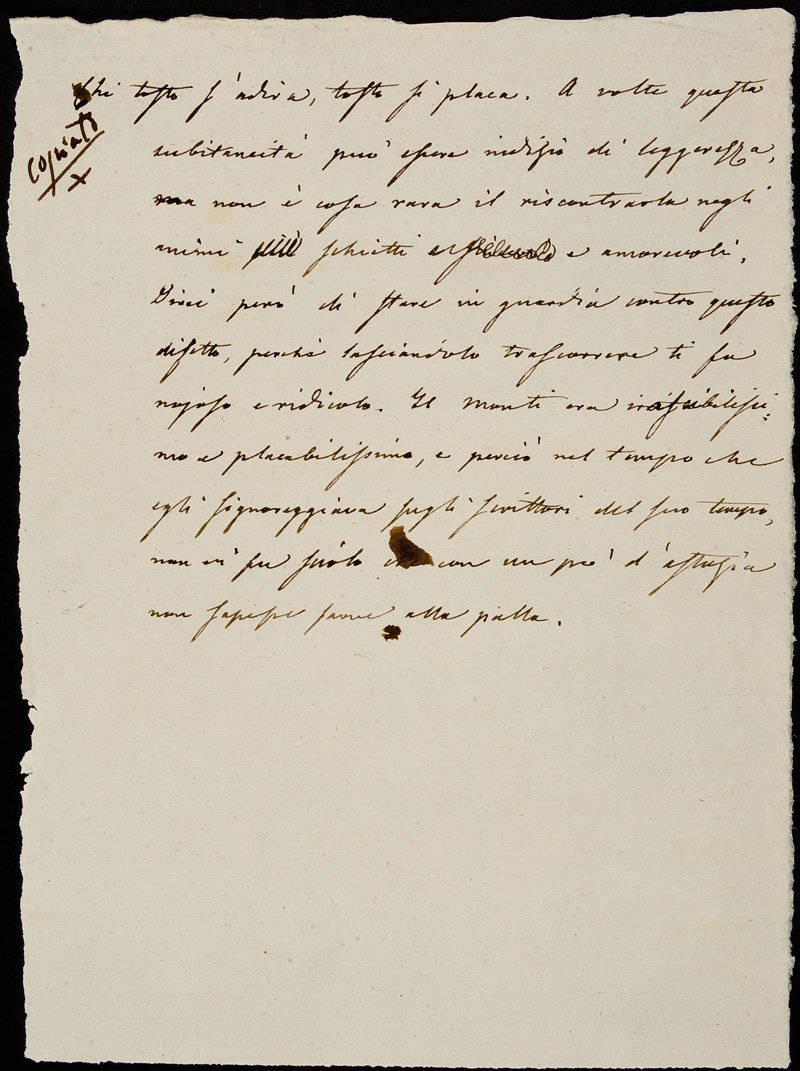 Chi tosto s'adira, tosto si placa. A volte questa
Copiato
X
subitaneità può essere indizio di leggerezza,
ma non è cosa rara il riscontrarla negli
animi schietti e amorevoli.
Direi però di stare in guardia contro questo
difetto, perché lasciandolo trascorrere ti fa
nojoso e ridicolo. Il Monti era irascibilissi-
mo e placabilissimo, e perciò nel tempo che
egli signoreggiava sugli scrittori del suo tempo,
non vi fu che con un po' d'astuzia
non sapesse farne alla palla.